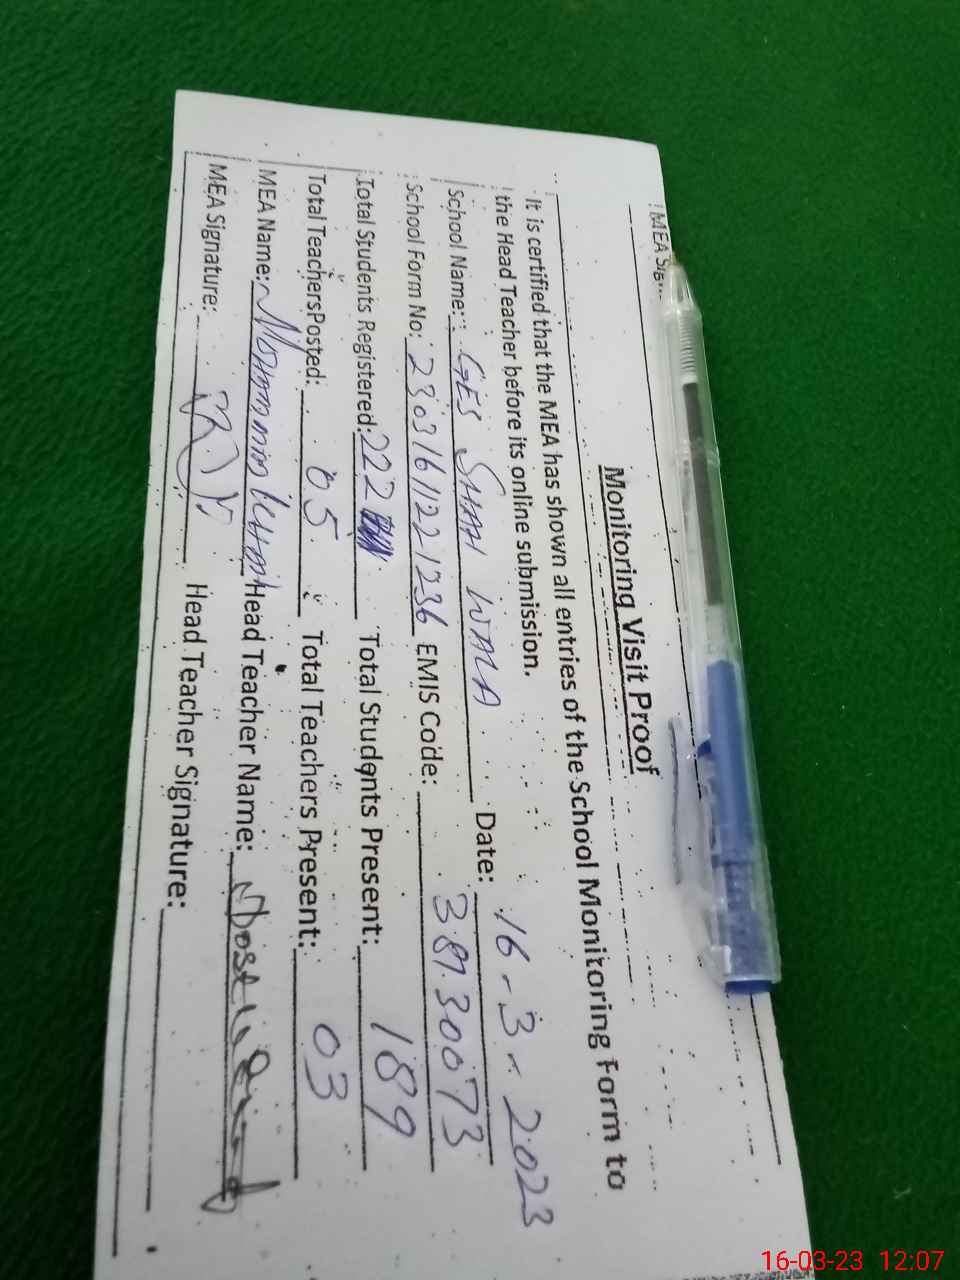 MEA Sig
Monitoring Visit Proof
It is certified that the MEA has shown all entries of the School Monitoring Form to
the Head Teacher before its online submission.
School Name: GES SHAH WALA Date: 16-3-2023
School Form No: 230316112 21236 EMIS Code: 38730073
Total Students Registered: 222 Total Students Present: 189
Total Teachers Posted: 05 Total Teachers Present: 03
MEA Name: Head Teacher Name:
MEA Signature: Head Teacher Signature:
16-03-23 12:07